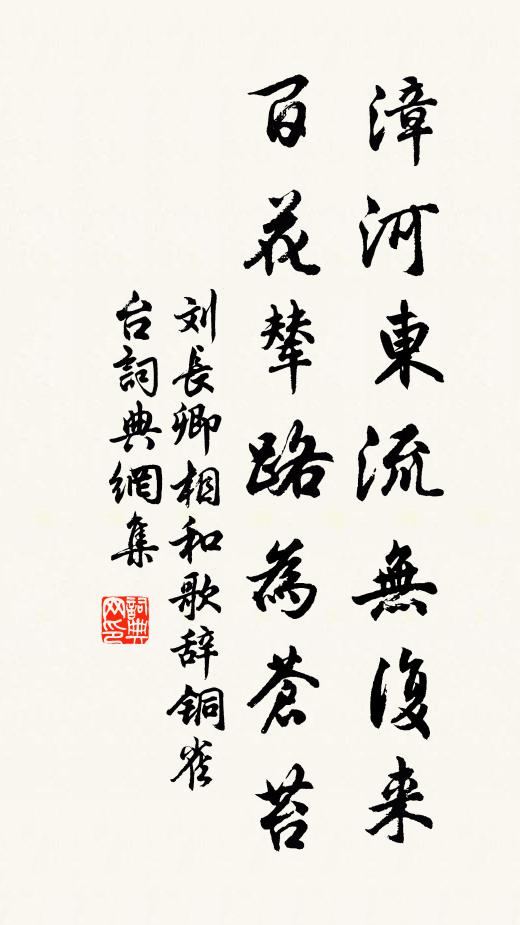 漳河東流無復来
百花輦路為蒼苔
刘長卿相和歌辞铜雀
台詞典網集
詞典
网印